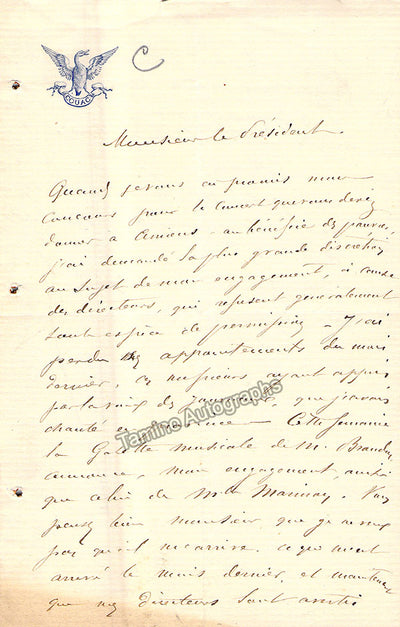 C
COUAC
Monsieur le Président.
Quand je vous ai promis mon
concours pour le concert que vous devez
donner à Amiens au bénéfice des pauvres,
j'ai demandé la plus grande discrétion
au sujet de mon engagement, à cause
des directeurs, qui refusent généralement
toute espèce de permission. J'ai
perdu mes appointements du mois
dernier, ces messieurs ayant appris
par la voix des journaux, que j'avais
chanté
Cette semaine
la Gazette musicale de M. Brandus
annonce, mon engagement, ainsi
que celui de Mme
pensez bien monsieur, que je ne veux
pas qu'il m'arrive, ce qui m'est
arrivé le mois dernier, et maintenant
que mes directeurs sont avertis
Tamino Autographs